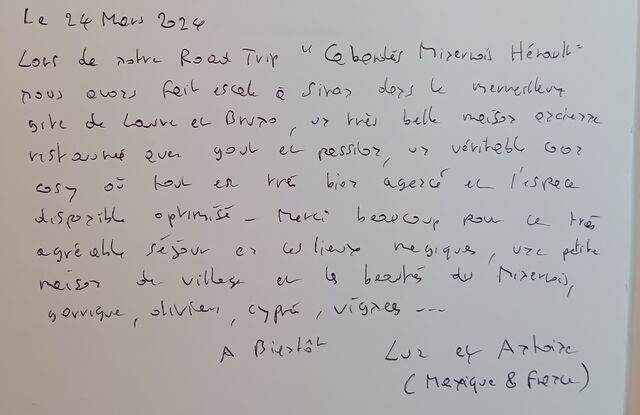 Le 24 Mars 2024
Lors de notre Road Trip " Cabardès Minervois Hérault"
nous avons fait escale à Siran dans le merveilleux
gite de Laure et Bruno, un très belle maison ancienne
restaurée avec gout et passion, un véritable coon
cosy où tout est très bien agencé et l'espace
disponible optimisé - Merci beaucoup pour ce très
agréable séjour en ces lieux magiques, une petite
maison de village et les beautés du Minervois,
garrigue, oliviers, cyprés, vignes ---
A Bientôt Luz et Antoine
(Mexique & France)